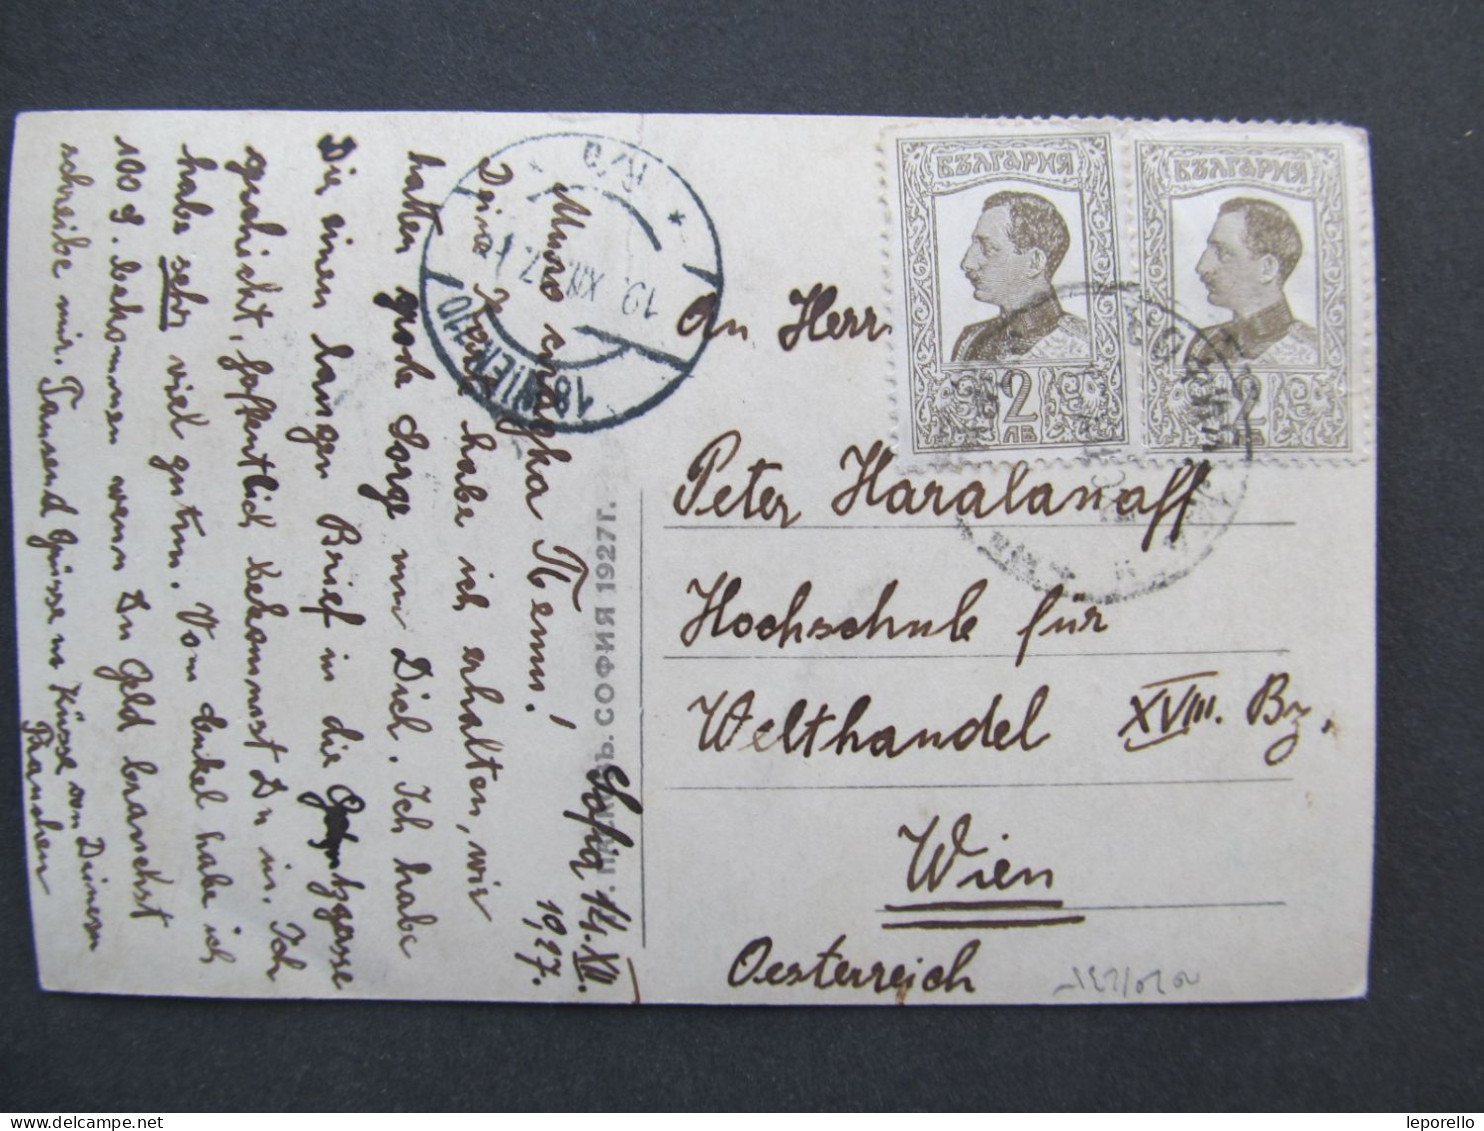 Sofia 14.XII.
1927.
Мило
Пенни!
Deine Karte habe ich erhalten, wir
hatten große Sorge um Dich. Ich habe
Dir einen langen Brief in die
geschickt, hoffentlich bekommst Du ihn. Ich
habe sehr viel zu tun. Vom Onkel habe ich
100 S. bekommen wenn Du Geld brauchst
schreibe mir. Tausend Grüsse u. Küsse von Deinem
ПЪТ. СОФИЯ 1927 г.
18 WIEN 110
19. XII. 27
БЪЛГАРИЯ
2
ЛВ
БЪЛГАРИЯ
2
ЛВ
An Herr
Peter Haralanoff
Hochschule für
Welthandel XVIII. Bz.
Wien
Oesterreich
leporello